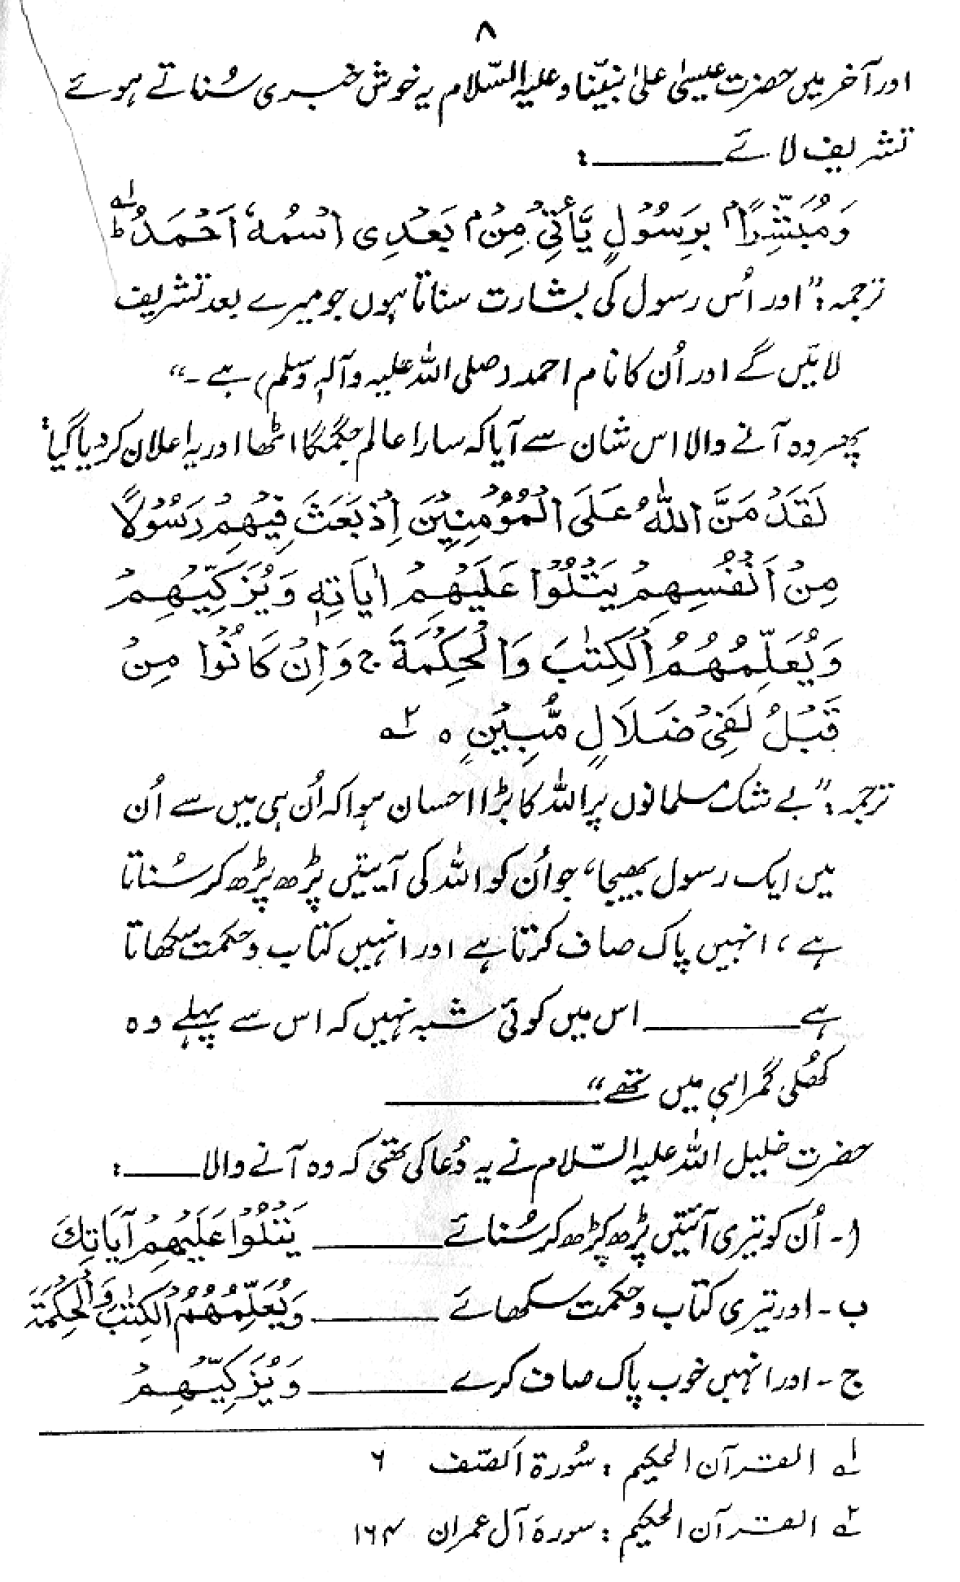 ۸
اور آخر میں حضرت عیسیٰ علیٰ نبیّنا و علیہ السّلام یہ خوش خبری سُناتے ہوئے
تشریف لائے ـــــــــ :
وَمُبَشِّرًاۢ بِرَسُوْلٍ يَّأْتِيْ مِنْۢ بَعْدِى اسْمُهٗ اَحْمَدُ ؕ ۱ے
ترجمہ : ”اور اُس رسول کی بشارت سناتا ہوں جو میرے بعد تشریف
لائیں گے اور اُن کا نام احمد (صلی اللہ علیہ وآلہٖ وسلم) ہے ۔“
پھر وہ آنے والا اس شان سے آیا کہ سارا عالم جگمگا اٹھا اور یہ اعلان کر دیا گیا :
لَقَدْ مَنَّ اللّٰهُ عَلَى الْمُؤْمِنِيْنَ اِذْ بَعَثَ فِيْهِمْ رَسُوْلًا
مِنْ اَنْفُسِهِمْ يَتْلُوْا عَلَيْهِمْ اٰيَاتِهٖ وَيُزَكِّيْهِمْ
وَيُعَلِّمُهُمُ الْكِتٰبَ وَالْحِكْمَةَ ج وَاِنْ كَانُوْا مِنْ
قَبْلُ لَفِيْ ضَلَالٍ مُّبِيْنٍ ه ۲ے
ترجمہ : ”بے شک مسلمانوں پر اللہ کا بڑا احسان ہوا کہ اُن ہی میں سے اُن
میں ایک رسول بھیجا، جو اُن کو اللہ کی آیتیں پڑھ پڑھ کر سُناتا
ہے، انہیں پاک صاف کرتا ہے اور انہیں کتاب و حکمت سکھاتا
ہے ـــــــــ اس میں کوئی شبہ نہیں کہ اس سے پہلے وہ
کھُلی گمراہی میں تھے“ ـــــــــ
حضرت خلیل اللہ علیہ السّلام نے یہ دُعا کی تھی کہ وہ آنے والا ـــــــــ :
ا۔ اُن کو تیری آئتیں پڑھ پڑھ کر سُنائے ـــــــــ يَتْلُوْا عَلَيْهِمْ آيَاتِكَ
ب۔ اور تیری کتاب و حکمت سکھائے ـــــــــ وَيُعَلِّمُهُمُ الْكِتٰبَ وَالْحِكْمَةَ
ج۔ اور انہیں خوب پاک صاف کرے ـــــــــ وَيُزَكِّيْهِمْ
۱ے القرآن الحکیم : سُورۃ الصّف ۶
۲ے القرآن الحکیم : سورۃ آل عمران ۱۶۴